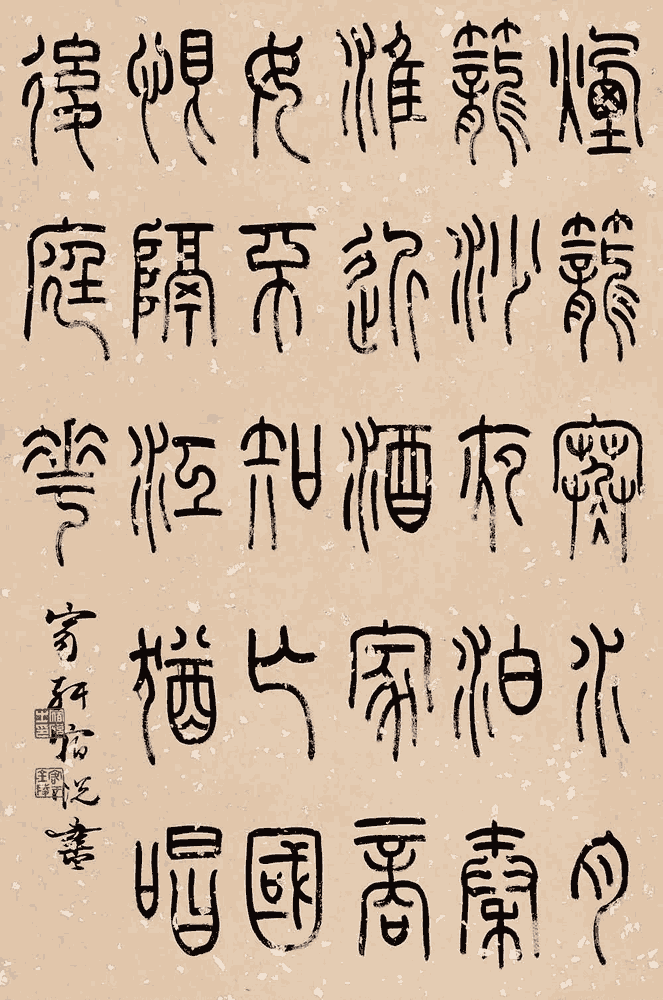 煙籠寒水月
籠沙夜泊秦
淮近酒家商
女不知亡國
恨隔江猶唱
後庭花
軒宿悦書